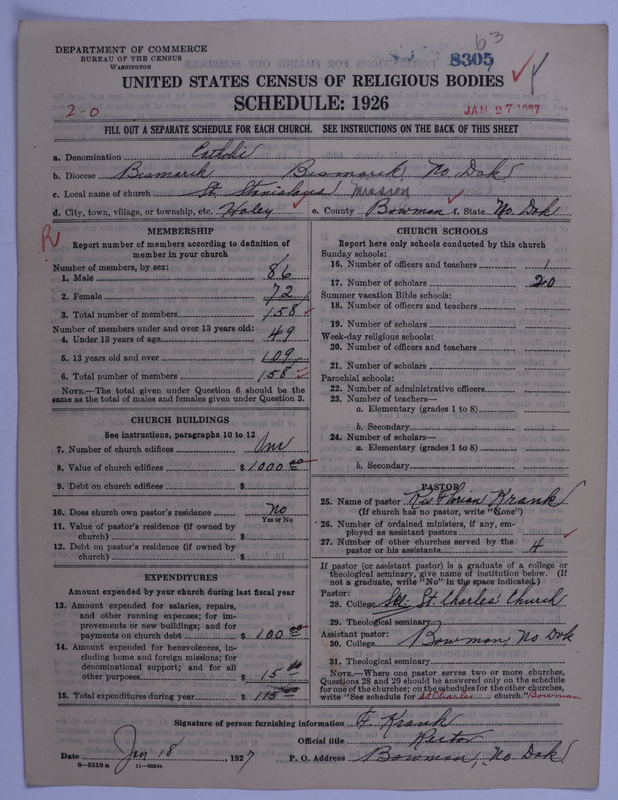 63
DEPARTMENT OF COMMERCE
BUREAU OF THE CENSUS
WASHINGTON
8305
UNITED STATES CENSUS OF RELIGIOUS BODIES
SCHEDULE: 1926
2-0
JAN 27 1927
FILL OUT A SEPARATE SCHEDULE FOR EACH CHURCH. SEE INSTRUCTIONS ON THE BACK OF THIS SHEET
a. Denomination Catholic
b. Diocese Bismarck Bismarck, No. Dak.
c. Local name of church St. Stanislaus Mission
d. City, town, village, or township, etc. Haley e. County Bowman f. State No. Dak
R
MEMBERSHIP
Report number of members according to definition of
member in your church
Number of members, by sex:
1. Male 86
2. Female 72
3. Total number of members 158
Number of members under and over 13 years old:
4. Under 13 years of age 49
5. 13 years old and over 109
6. Total number of members 158
NOTE.—The total given under Question 6 should be the
same as the total of males and females given under Question 3.
CHURCH BUILDINGS
See instructions, paragraphs 10 to 12
7. Number of church edifices One
8. Value of church edifices $ 1000 00
9. Debt on church edifices $
10. Does church own pastor's residence? No
Yes or No
11. Value of pastor's residence (if owned by
church) $
12. Debt on pastor's residence (if owned by
church) $
EXPENDITURES
Amount expended by your church during last fiscal year
13. Amount expended for salaries, repairs,
and other running expenses; for im-
provements or new buildings; and for
payments on church debt $ 100 00
14. Amount expended for benevolences, in-
cluding home and foreign missions; for
denominational support; and for all
other purposes $ 15 00
15. Total expenditures during year $ 115 00
CHURCH SCHOOLS
Report here only schools conducted by this church
Sunday schools:
16. Number of officers and teachers 1
17. Number of scholars 20
Summer vacation Bible schools:
18. Number of officers and teachers
19. Number of scholars
Week-day religious schools:
20. Number of officers and teachers
21. Number of scholars
Parochial schools:
22. Number of administrative officers
23. Number of teachers—
a. Elementary (grades 1 to 8)
b. Secondary
24. Number of scholars—
a. Elementary (grades 1 to 8)
b. Secondary
PASTOR
25. Name of pastor Rev. Florian Krank
(If church has no pastor, write "None")
26. Number of ordained ministers, if any, em-
ployed as assistant pastors
27. Number of other churches served by the
pastor or his assistants 4
If pastor (or assistant pastor) is a graduate of a college or
theological seminary, give name of institution below. (If
not a graduate, write "No" in the space indicated.)
Pastor:
28. College See St Charles' Church
29. Theological seminary
Assistant pastor:
30. College Bowman, No Dak
31. Theological seminary
NOTE.—Where one pastor serves two or more churches,
Questions 28 and 29 should be answered only on the schedule
for one of the churches; on the schedules for the other churches,
write "See schedule for St Charles church." Bowman
Signature of person furnishing information F. Krank
Official title Rector
Date Jan 18, 1927 P. O. Address Bowman, No Dak.
8—5518 a 11—9068a